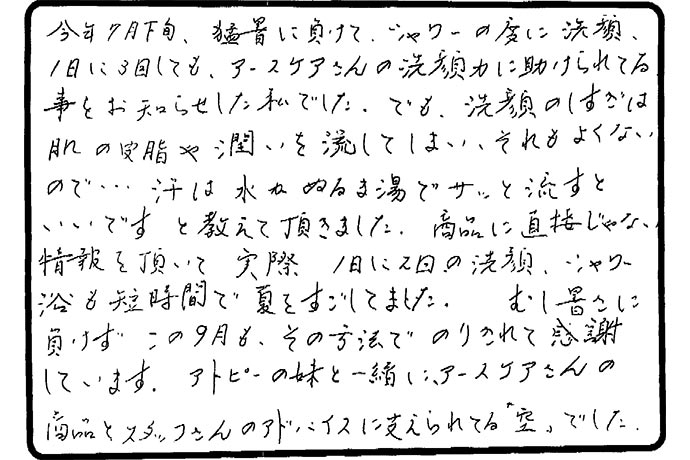 今年7月下旬、猛暑に負けて、シャワーの度に洗顔、
1日に3回しても、アースケアさんの洗顔力に助けられてる
事をお知らせした私でした。でも、洗顔のしすぎは
肌の皮脂や潤いを流してしまい、それもよくない
ので… 汗は水かぬるま湯でサッと流すと
いいですと教えて頂きました。商品に直接じゃない
情報を頂いて 実際 1日に2回の洗顔、シャワー
浴も短時間で夏をすごしてました。 むし暑さに
負けず この9月も、その方法で のりきれて感謝
しています。アトピーの妹と一緒に、アースケアさんの
商品とスタッフさんのアドバイスに支えられてる「空」でした。